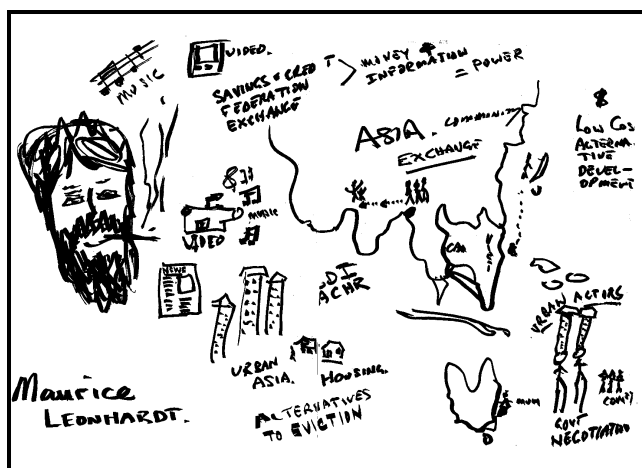 MUSIC
VIDEO.
SAVINGS & CREDIT
FEDERATION
EXCHANGE
MONEY
INFORMATION
= POWER
ASIA.
EXCHANGE
$
LOW COS
ALTERNA-
TIVE
DEVEL-
OPMENT
&
MUSIC
VIDEO
NEWS
DI
ACHR
URBAN
ASIA.
HOUSING.
ALTERNATIVES
TO EVICTION
URBAN ACTORS
GOVT
NEGOTIATIO
Maurice
LEONHARDT.